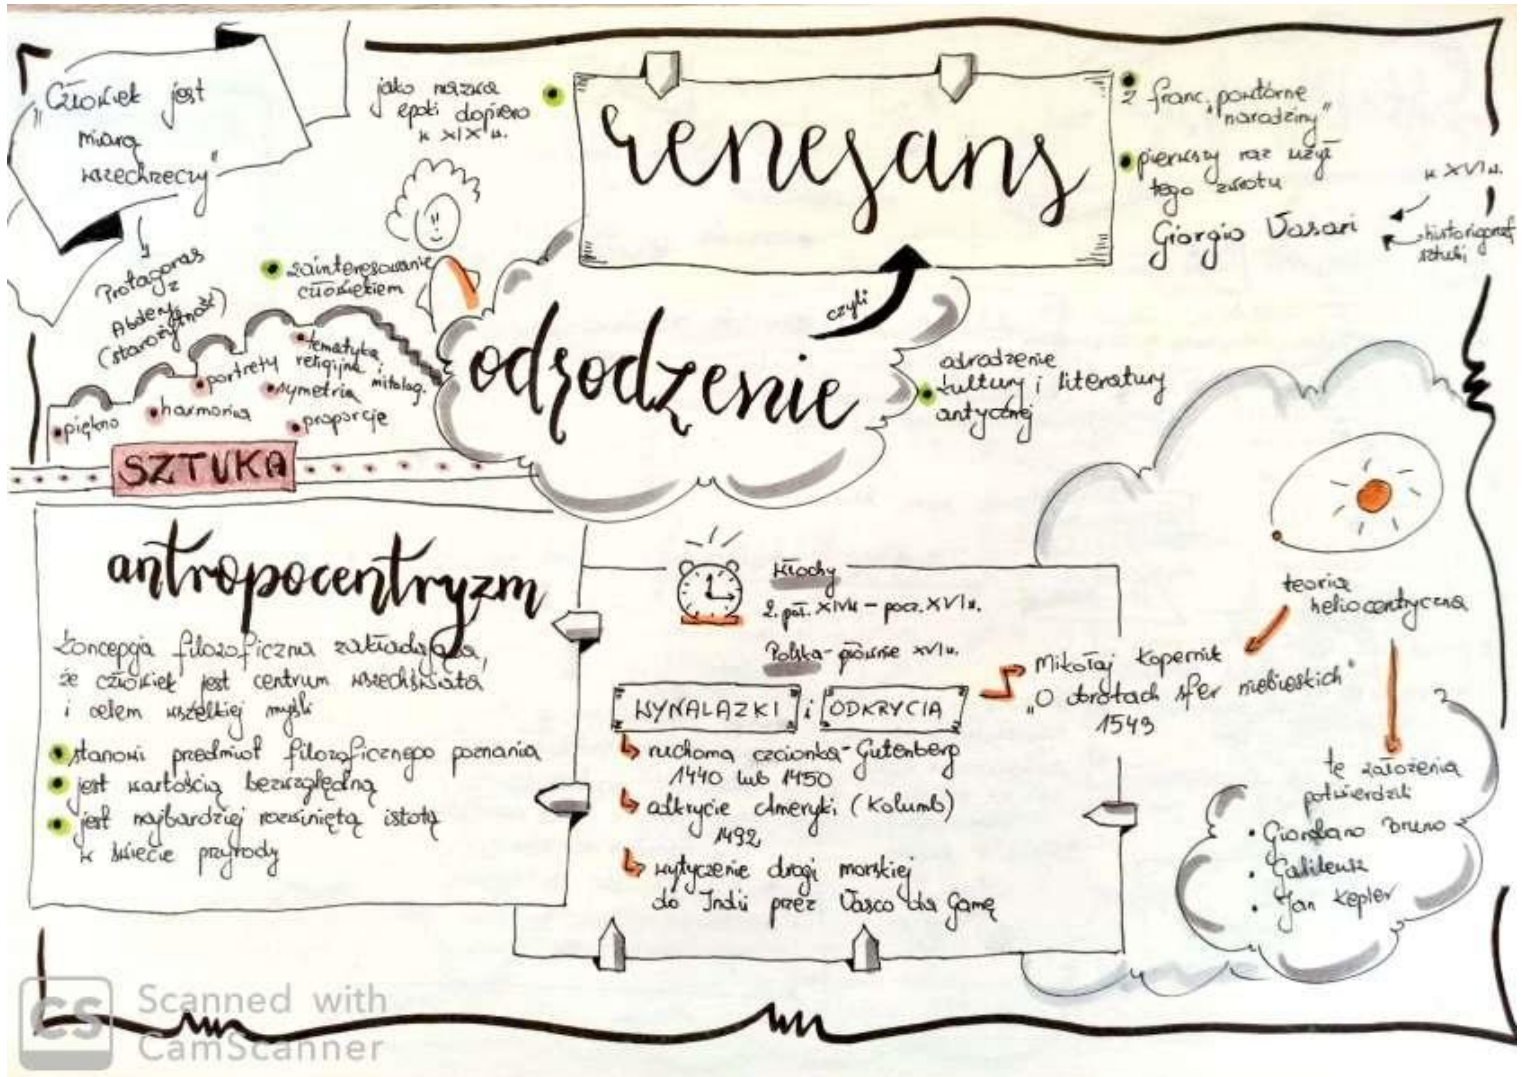 „Człowiek jest
miarą
wszechrzeczy"
Protagoras
z
Abdery
(starożytność)
jako nazwa
epoki dopiero
w XIX w.
renesans
z franc. „powtórne
narodziny"
pierwszy raz użył
tego zwrotu
Giorgio Vasari
w XVI w.
historiograf
sztuki
zainteresowanie
człowiekiem
czyli
odrodzenie
odrodzenie
kultury i literatury
antycznej
piękno
harmonia
portrety
tematyka
religijna i
mitolog.
symetria
proporcje
SZTUKA
antropocentryzm
koncepcja filozoficzna zakładająca,
że człowiek jest centrum wszechświata
i celem wszelkiej myśli
stanowi przedmiot filozoficznego poznania
jest wartością bezwzględną
jest najbardziej rozwiniętą istotą
w świecie przyrody
Włochy
2. poł. XIV w – pocz. XVI w.
Polska - głównie XVI w.
WYNALAZKI i ODKRYCIA
ruchoma czcionka - Gutenberg
1440 lub 1450
odkrycie Ameryki (Kolumb)
1492
wytyczenie drogi morskiej
do Indii przez Vasco da Gamę
teoria
heliocentryczna
Mikołaj Kopernik
„O obrotach sfer niebieskich"
1543
te założenia
potwierdzili
Giordano Bruno
Galileusz
Jan Kepler
CS
Scanned with
CamScanner